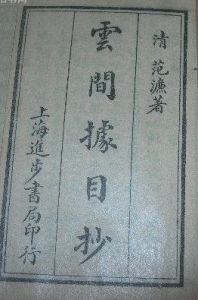 清 范濂著
雲間據目抄
上海進步書局印行